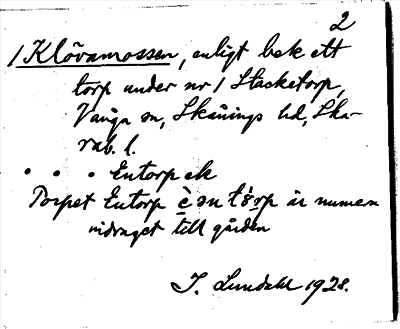 2
1 Klövamossen, enligt bek ett
torp under nr 1 Stacketorp,
Vånga sn, Skånings hd, Ska-
rab. l.
. . . Entorp ek
Torpet Entorp è ən tö́rp är numera
indraget till gården
I. Lundahl 1928.